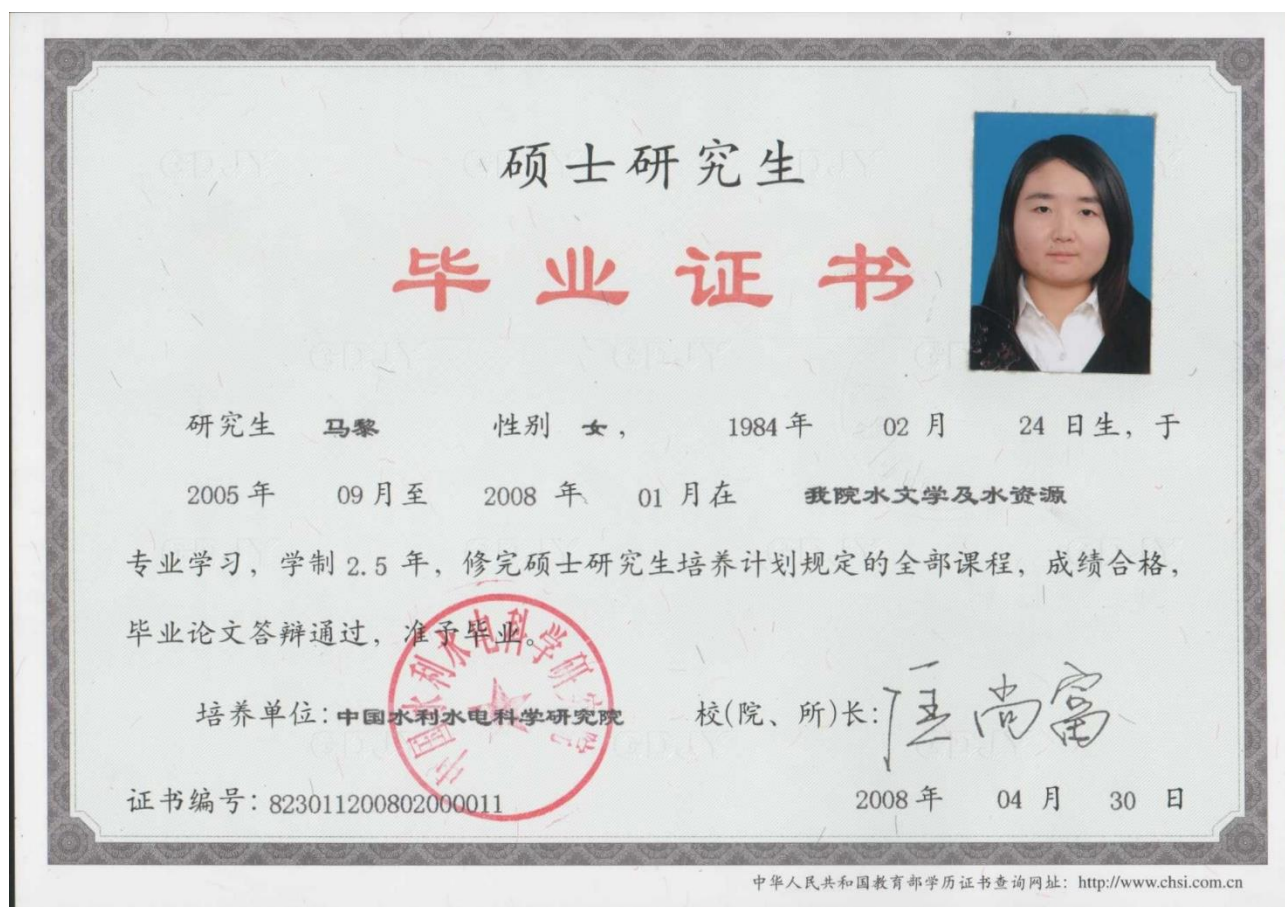 硕士研究生
毕业证书
研究生 马黎 性别 女， 1984年 02月 24日生，于
2005年 09月至 2008年 01月在 我院水文学及水资源
专业学习，学制2.5年，修完硕士研究生培养计划规定的全部课程，成绩合格，
毕业论文答辩通过，准予毕业。
中国水利水电科学研究院
培养单位：中国水利水电科学研究院 校(院、所)长：匡尚富
证书编号：823011200802000011 2008年 04月 30日
中华人民共和国教育部学历证书查询网址：http://www.chsi.com.cn